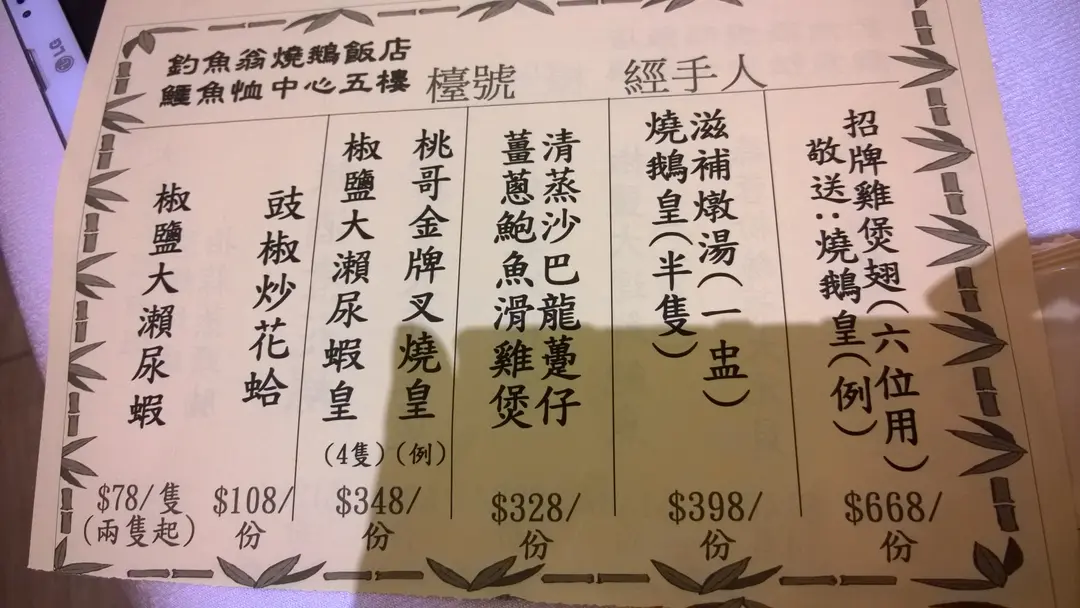 釣魚翁燒鵝飯店
鱷魚恤中心五樓
檯號
經手人
招牌雞煲翅(六位用)
敬送:燒鵝皇(例)
$668/
份
滋補燉湯(一盅)
燒鵝皇(半隻)
$398/
份
清蒸沙巴龍躉仔
薑蔥鮑魚滑雞煲
$328/
份
桃哥金牌叉燒皇(例)
椒鹽大瀨尿蝦皇(4隻)
$348/
份
豉椒炒花蛤
$108/
份
椒鹽大瀨尿蝦
$78/隻
(兩隻起)